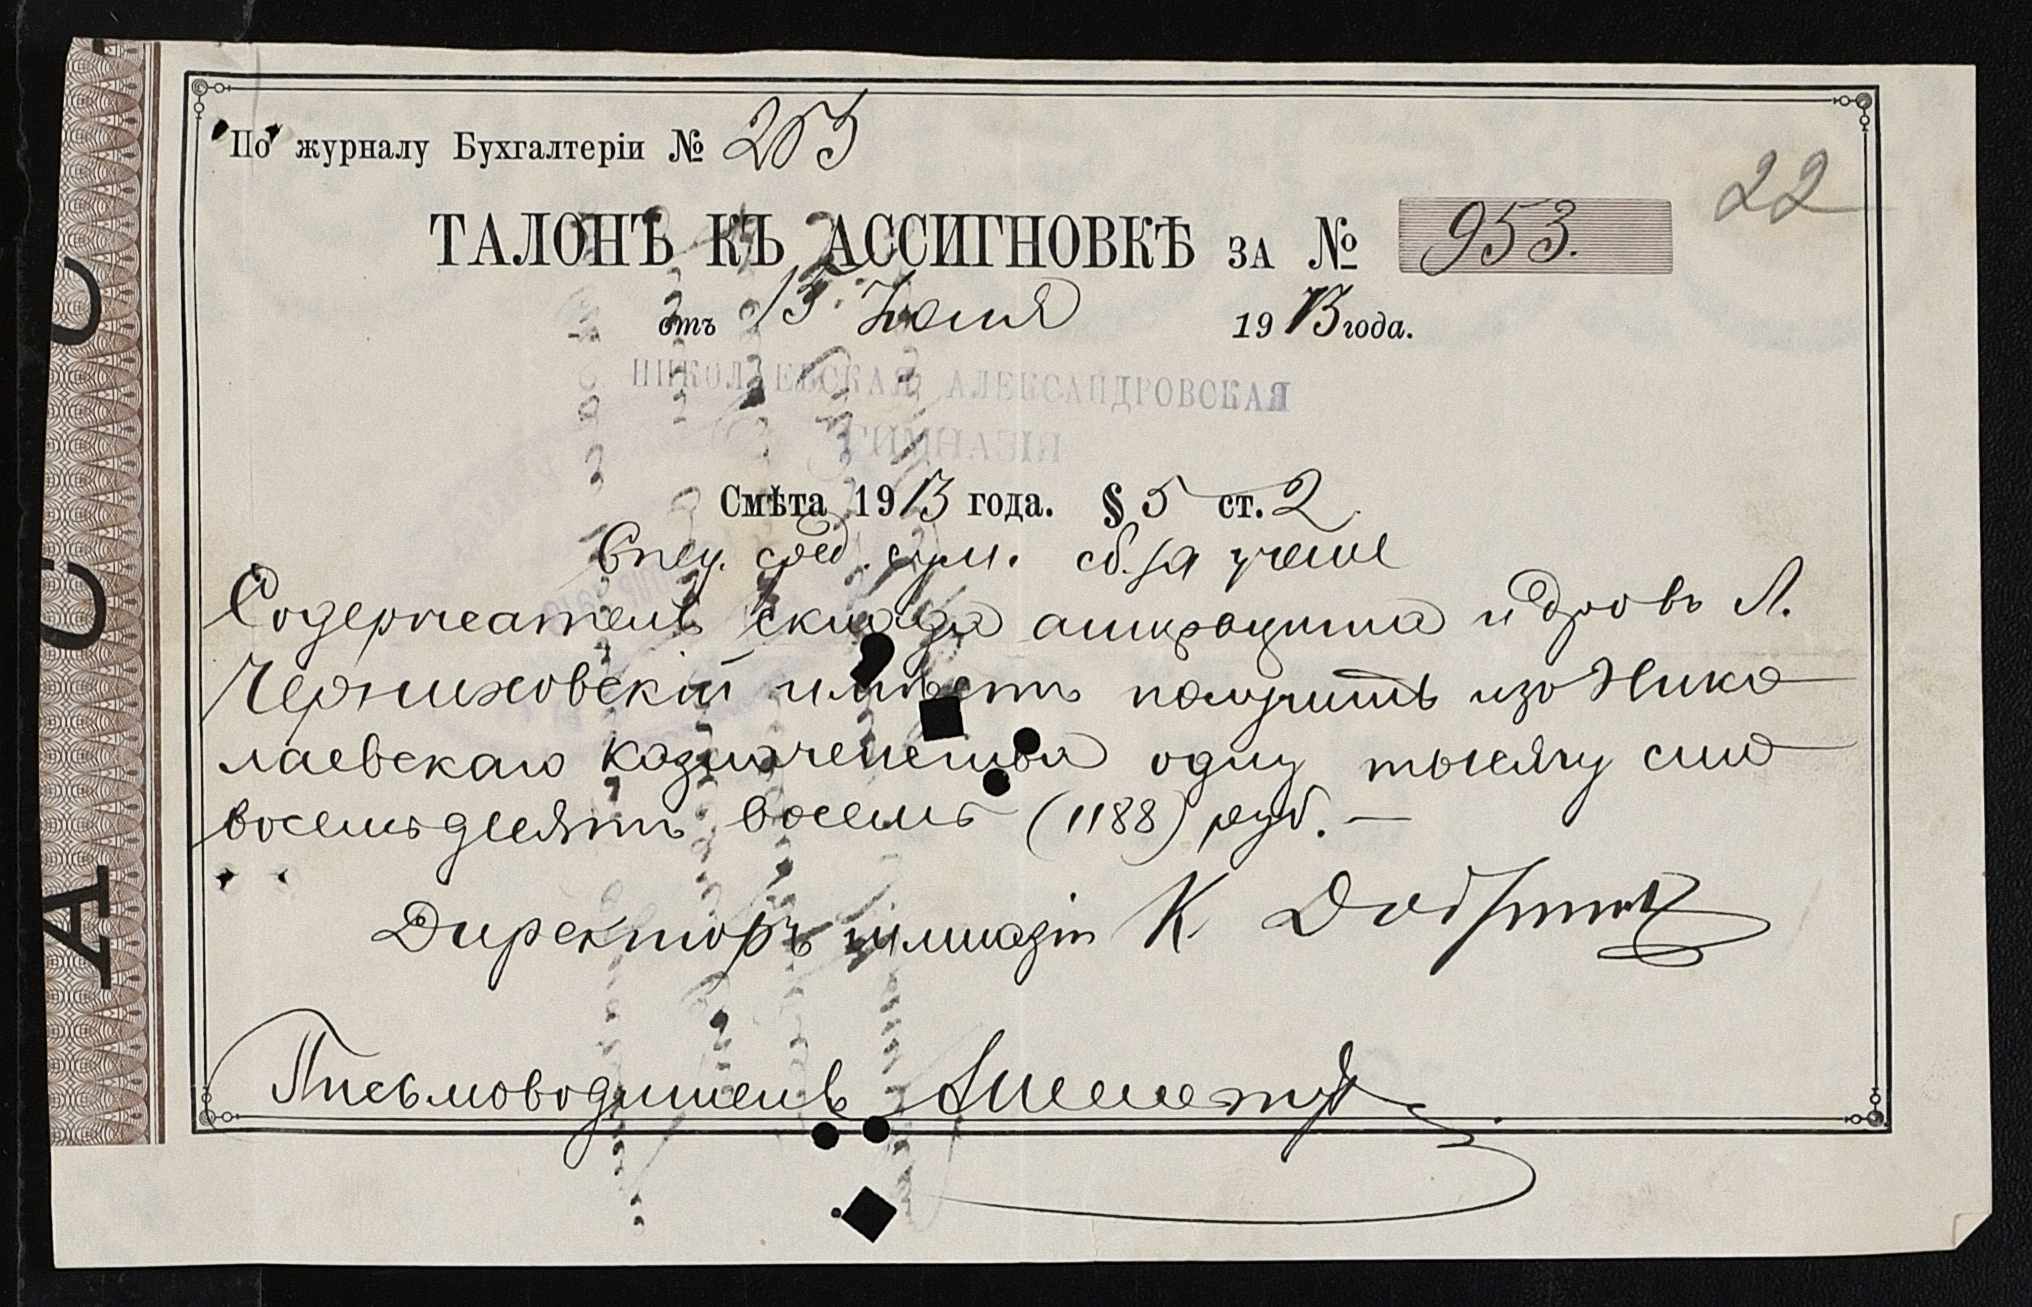 По журналу Бухгалтеріи № 253
22
ТАЛОНЪ КЪ АССИГНОВКѢ ЗА № 953.
отъ 13 Іюня 1913 года.
НИКОЛАЕВСКАЯ АЛЕКСАНДРОВСКАЯ
ГИМНАЗІЯ
Смѣта 1913 года. § 5 ст. 2
Спец. сред. сум. сб. за учене
Содержатель склада антрацита и дровъ Л.
Черниховскій имѣетъ получить изъ Нико
лаевскаго казначейства одну тысячу сто
восемьдесятъ восемь (1188) руб. —
Директоръ гимназіи К.
Письмоводитель
АССС